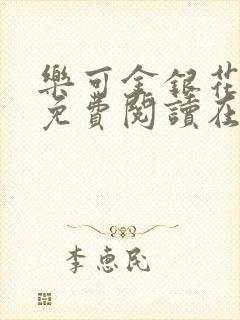 樂可金銀花
免費閱讀在
李惠民